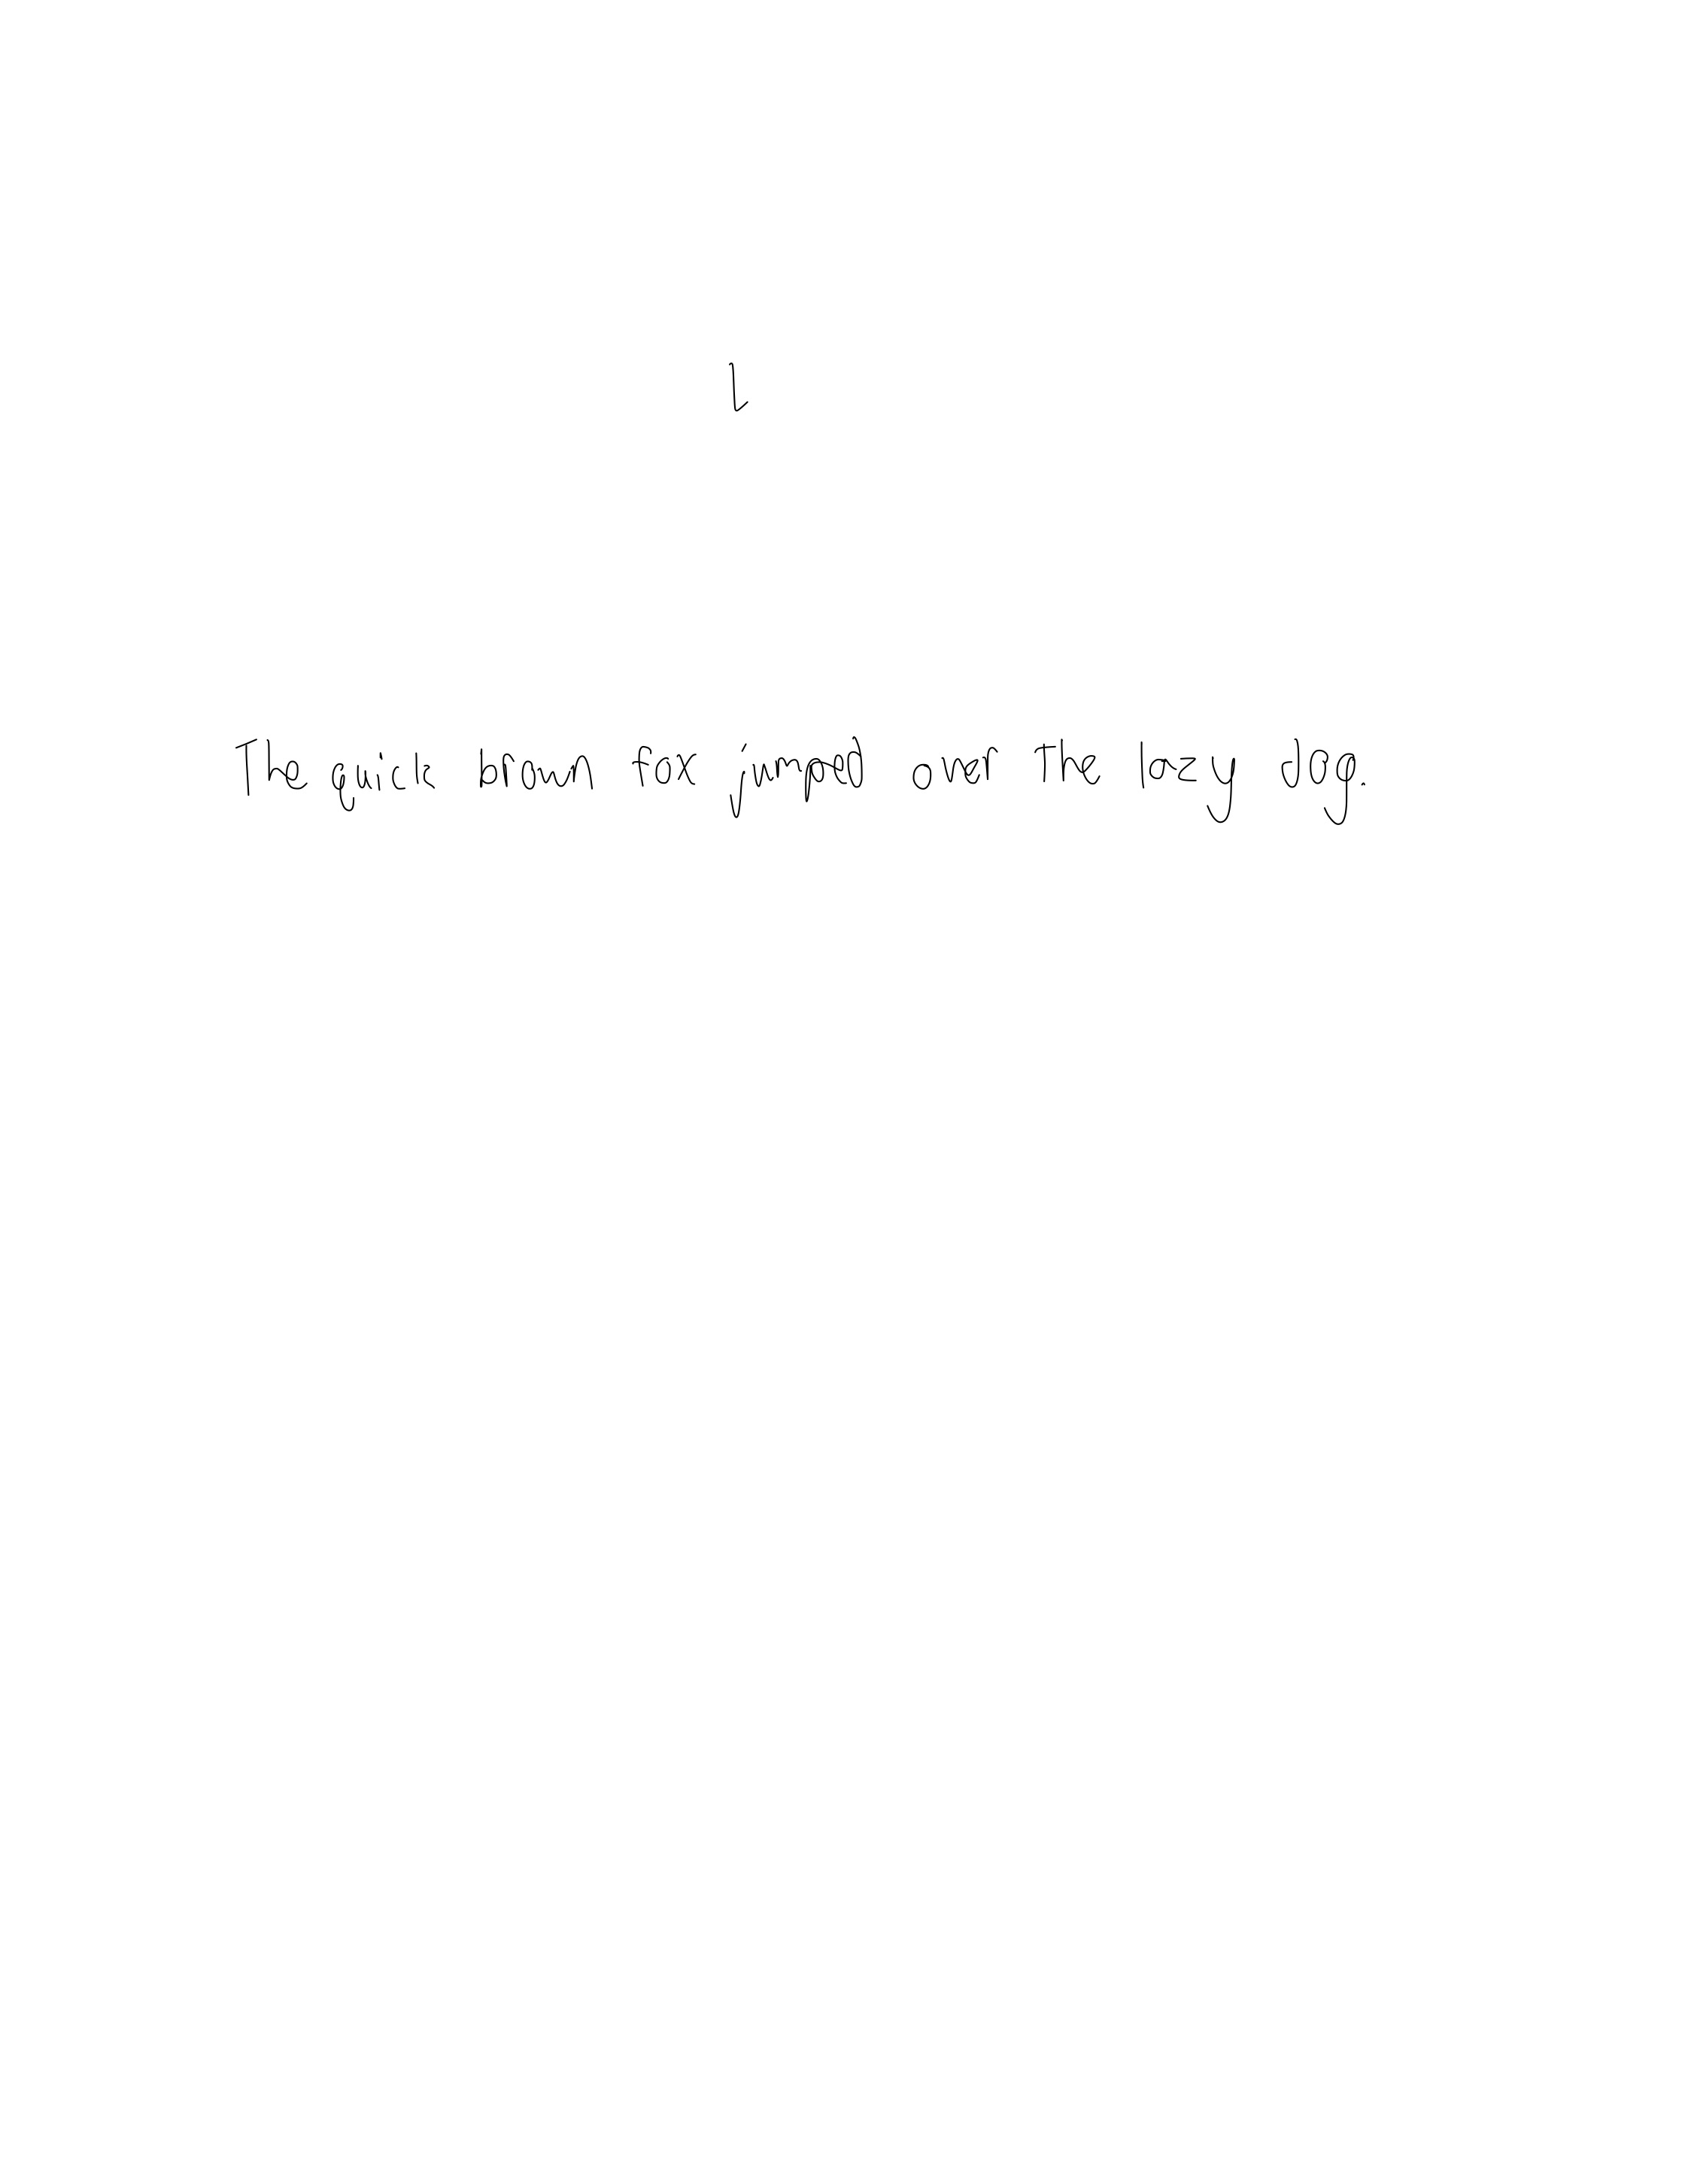 l
The quick brown fox jumped over the lazy dog.